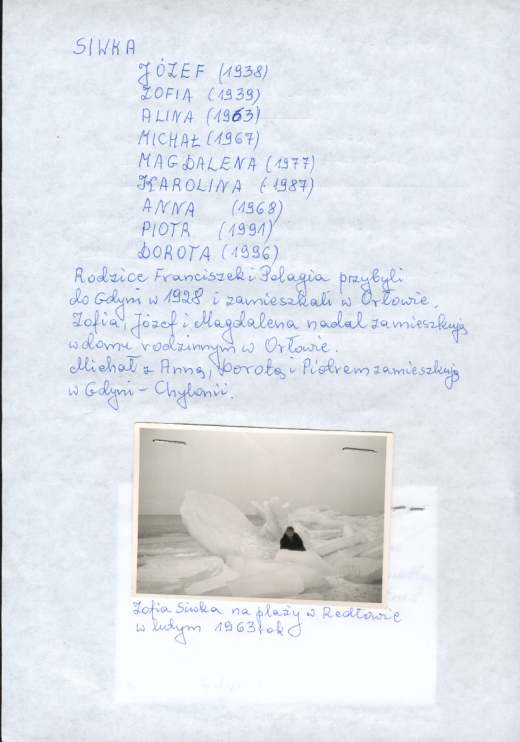 SIWKA
JÓZEF (1938)
ZOFIA (1939)
ALINA (1963)
MICHAŁ (1967)
MAGDALENA (1977)
KAROLINA (1987)
ANNA (1968)
PIOTR (1991)
DOROTA (1996)
Rodzice Franciszek i Pelagia przybyli
do Gdyni w 1928 i zamieszkali w Orłowie.
Zofia, Józef i Magdalena nadal zamieszkują
w domu rodzinnym w Orłowie.
Michał z Anną, Dorotą i Piotrem zamieszkują
w Gdyni - Chylonii.
Zofia Siwka na plaży w Redłowie
w lutym 1963 rok